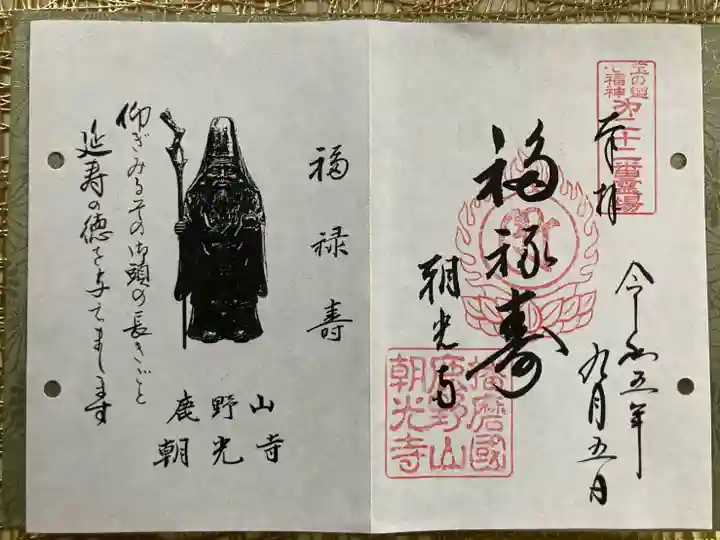 第二十二番霊場
奉拝
令和五年
九月五日
福禄寿
朝光寺
播磨國
鹿野山
朝光寺
福禄寿
仰ぎみるその御頭の長きごと
延寿の徳を与てまします
鹿野山
朝光寺